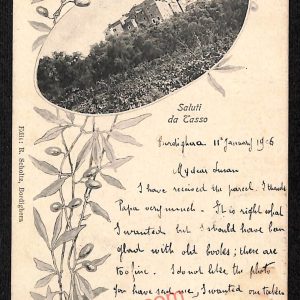 Saluti
da Sasso
Bordighera 11th January 1906
My dear Susan
I have received the parcel. I thank
Papa very much. It is right what
I wanted but I should have been
glad with old books; there are
too fine. I do not like the photo
you have sent me, I wanted one taken
Edit: R. Scholtz, Bordighera